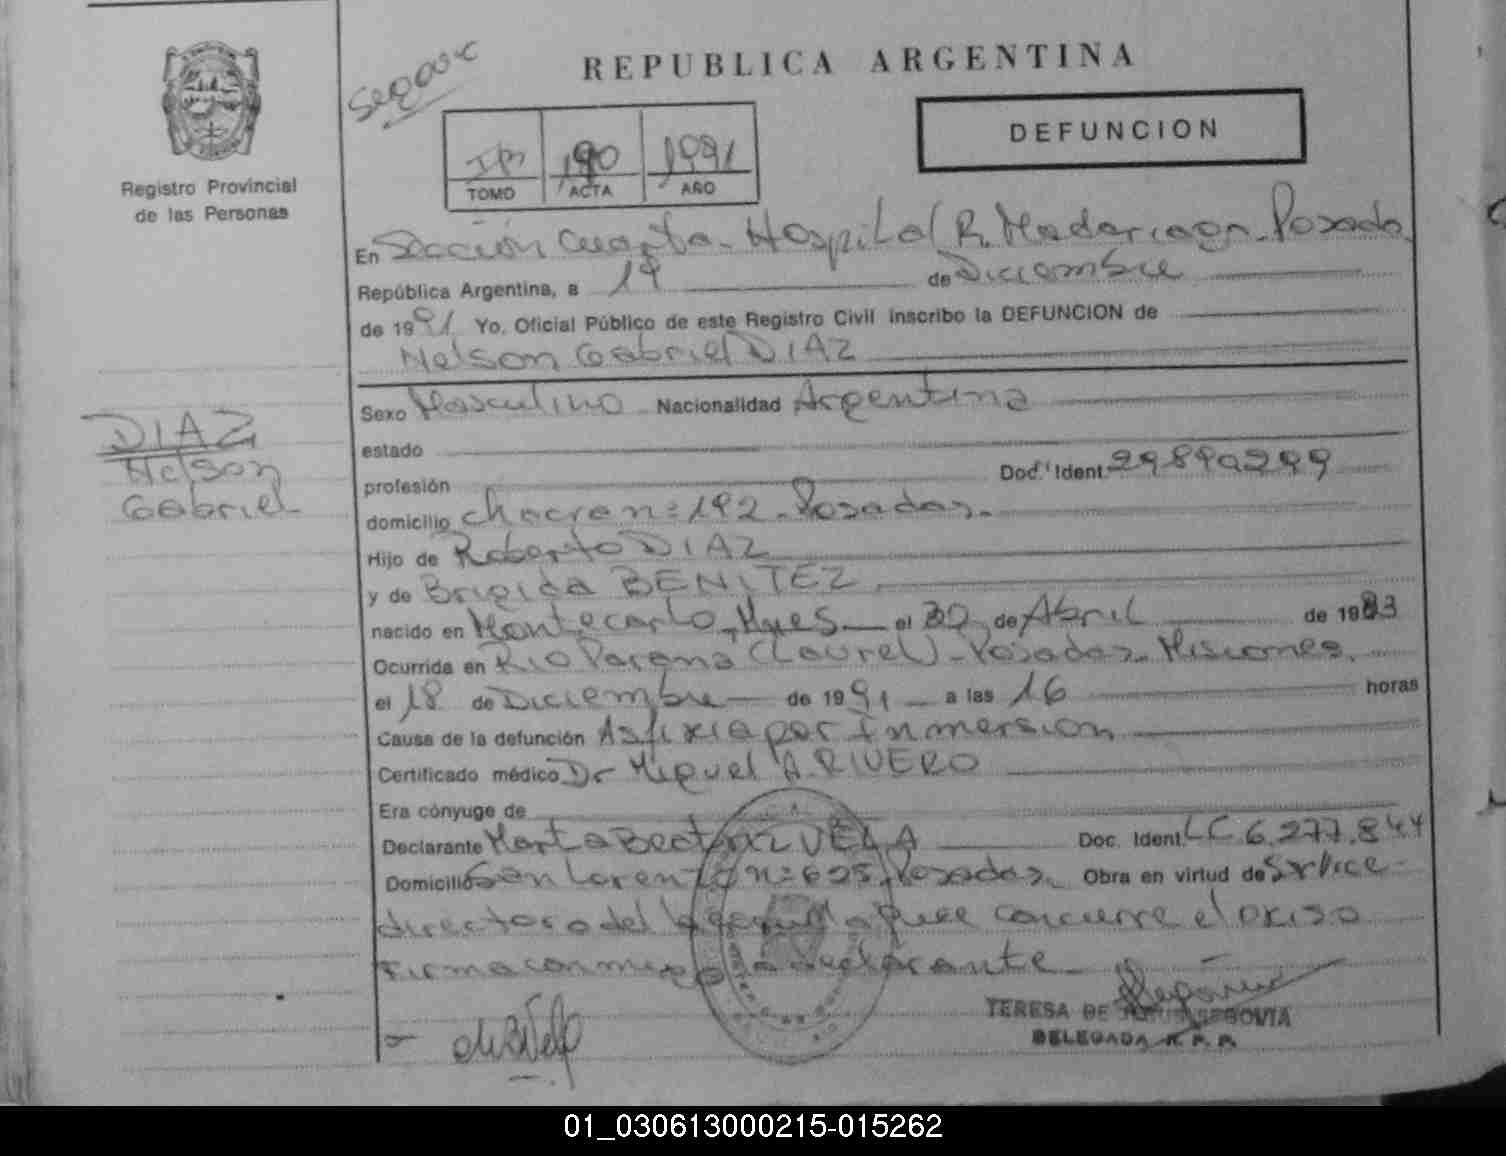 Registro Provincial
de las Personas
REPUBLICA ARGENTINA
DEFUNCION
190 1991
TOMO ACTA AÑO
En Sección Cuarta - Hospital R. Madariaga - Posadas
República Argentina, a 19 de Diciembre
de 1991 Yo, Oficial Público de este Registro Civil inscribo la DEFUNCION de
Nelson Gabriel DIAZ
DIAZ
Nelson
Gabriel
Sexo Masculino Nacionalidad Argentina
estado
profesión Doc. Ident.
domicilio Chacra n: 192 - Posadas.
Hijo de Roberto DIAZ
y de Brigida BENITEZ
nacido en Montecarlo, Mnes el de Abril de 1983
Ocurrida en Rio Parana (Laurel) - Posadas - Misiones.
el 18 de Diciembre de 1991 a las 16 horas
Causa de la defunción Asfixia por Inmersion
Certificado médico Dr Miguel A. RIVERO
Era cónyuge de
Declarante Marta Beatriz VELA Doc. Ident. LC 6.277.844
Domicilio San Lorenzo n: 625 Posadas Obra en virtud de ser Vice-
directora del a que concurre el occiso
Firma conmigo la declarante
TERESA DE SEGOVIA
DELEGADA R. P. P.
01_030613000215-015262